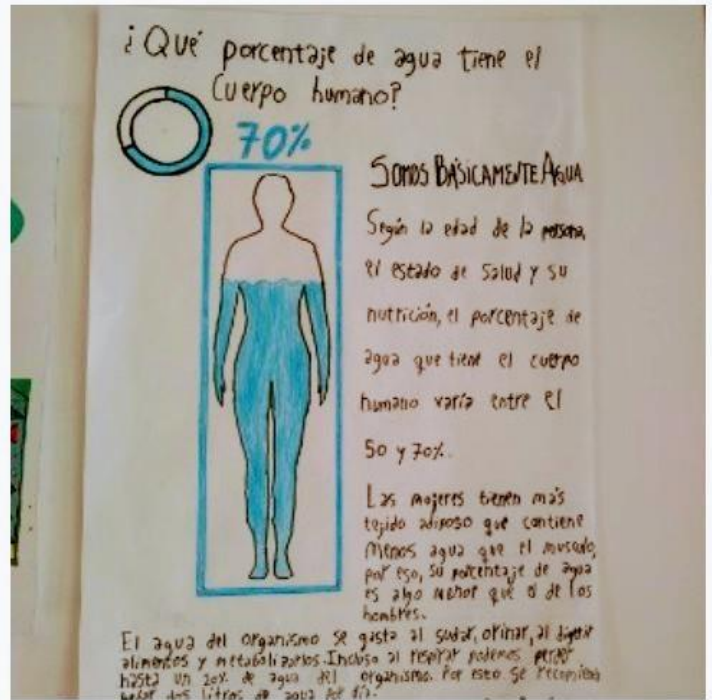 ¿Qué porcentaje de agua tiene el
Cuerpo humano?
70%
SOMOS BÁSICAMENTE AGUA
Según la edad de la persona,
el estado de Salud y su
nutrición, el porcentaje de
agua que tiene el cuerpo
humano varía entre el
50 y 70%.
Las mujeres tienen más
tejido adiposo que contiene
menos agua que el musculo,
por eso, su porcentaje de agua
es algo menor que el de los
hombres.
El agua del organismo se gasta al sudar, orinar, al digerir
alimentos y metabolizarlos. Incluso al respirar podemos perder
hasta un 20% de agua del organismo. Por esto se recomienda
beber dos litros de agua por día.